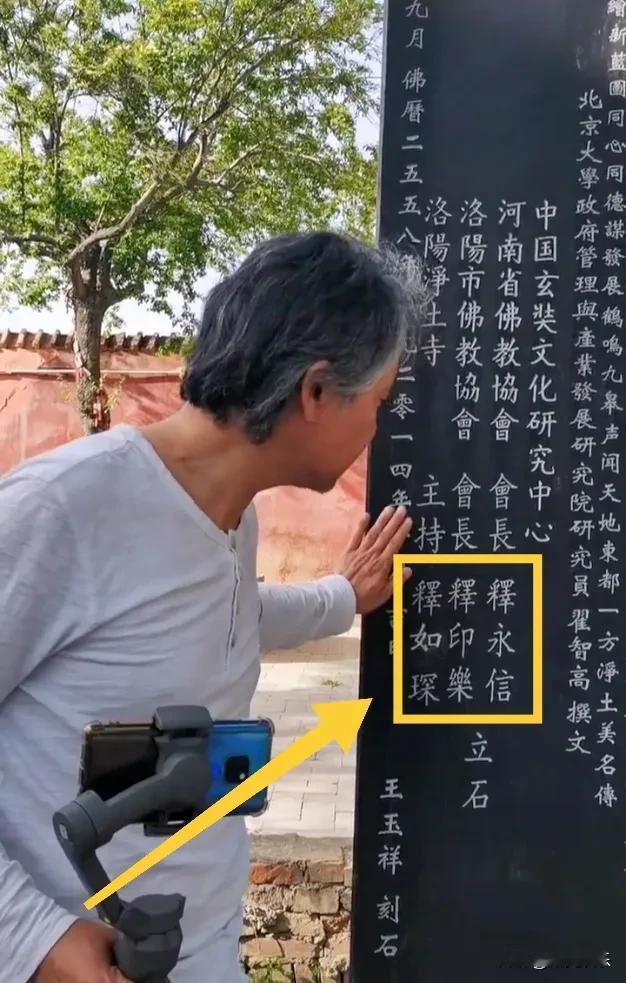 繪新藍圖同心同德謀發展鶴鳴九皋声闻天地東都一方淨土美名傳
北京大學政府管理與產業發展研究院研究員 翟智高 撰文
中国玄奘文化研究中心
河南省佛教協會 會長 釋永信
洛陽市佛教協會 會長 釋印樂 立石
洛陽淨土寺 主持 釋如琛
九月 佛曆二五五八 二零一四年
王玉祥 刻石